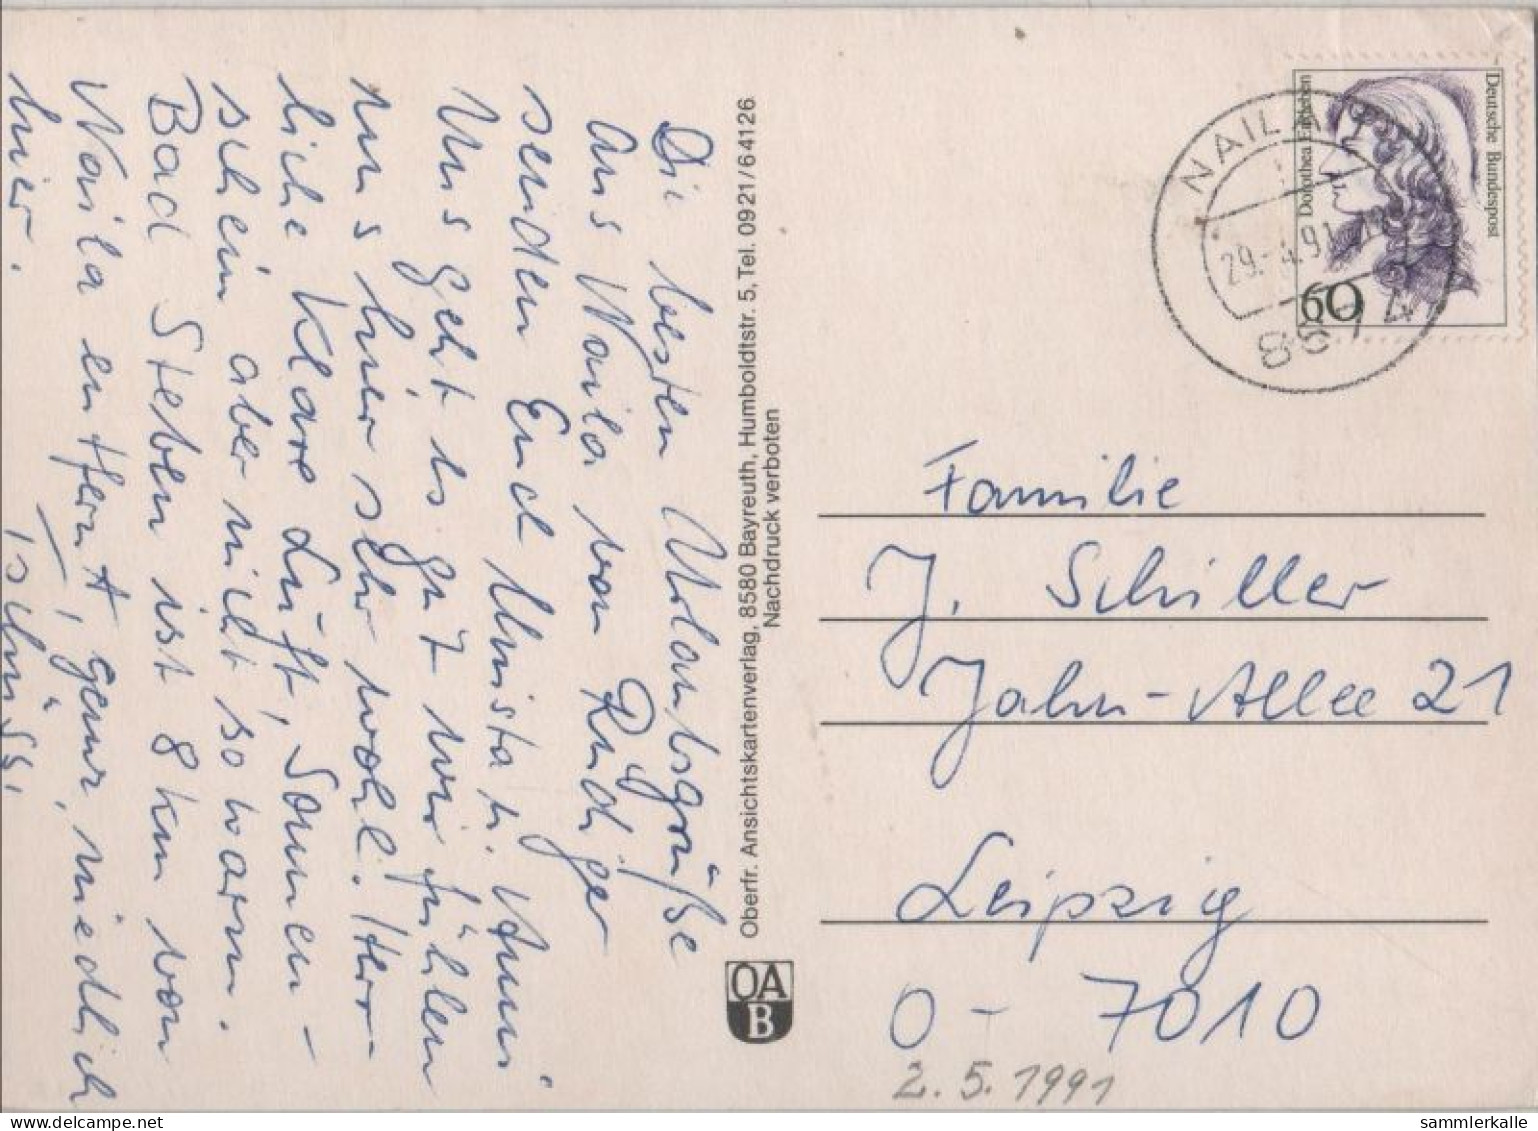 Die besten Urlaubsgrüße
aus Naila von Rüdiger
senden Euch Christa u.
Uns geht es gut wir fühlen
uns hier sehr wohl. Herr-
liche Klare Luft, Sonnen-
schein aber nicht so warm.
Bad Steben ist 8 km von
Naila entfernt, genz niedlich
hier.
Tschüß,
Oberfr. Ansichtskartenverlag, 8580 Bayreuth, Humboldtstr. 5, Tel. 0921/64126
Nachdruck verboten
OA
B
Deutsche Bundespost
Dorothea Erxleben
60
NAILA 1
29.-4.91
8674
Familie
J. Schiller
Jahn-Allee 21
Leipzig
O-7010
2.5.1991
www.delcampe.net
sammlerkalle